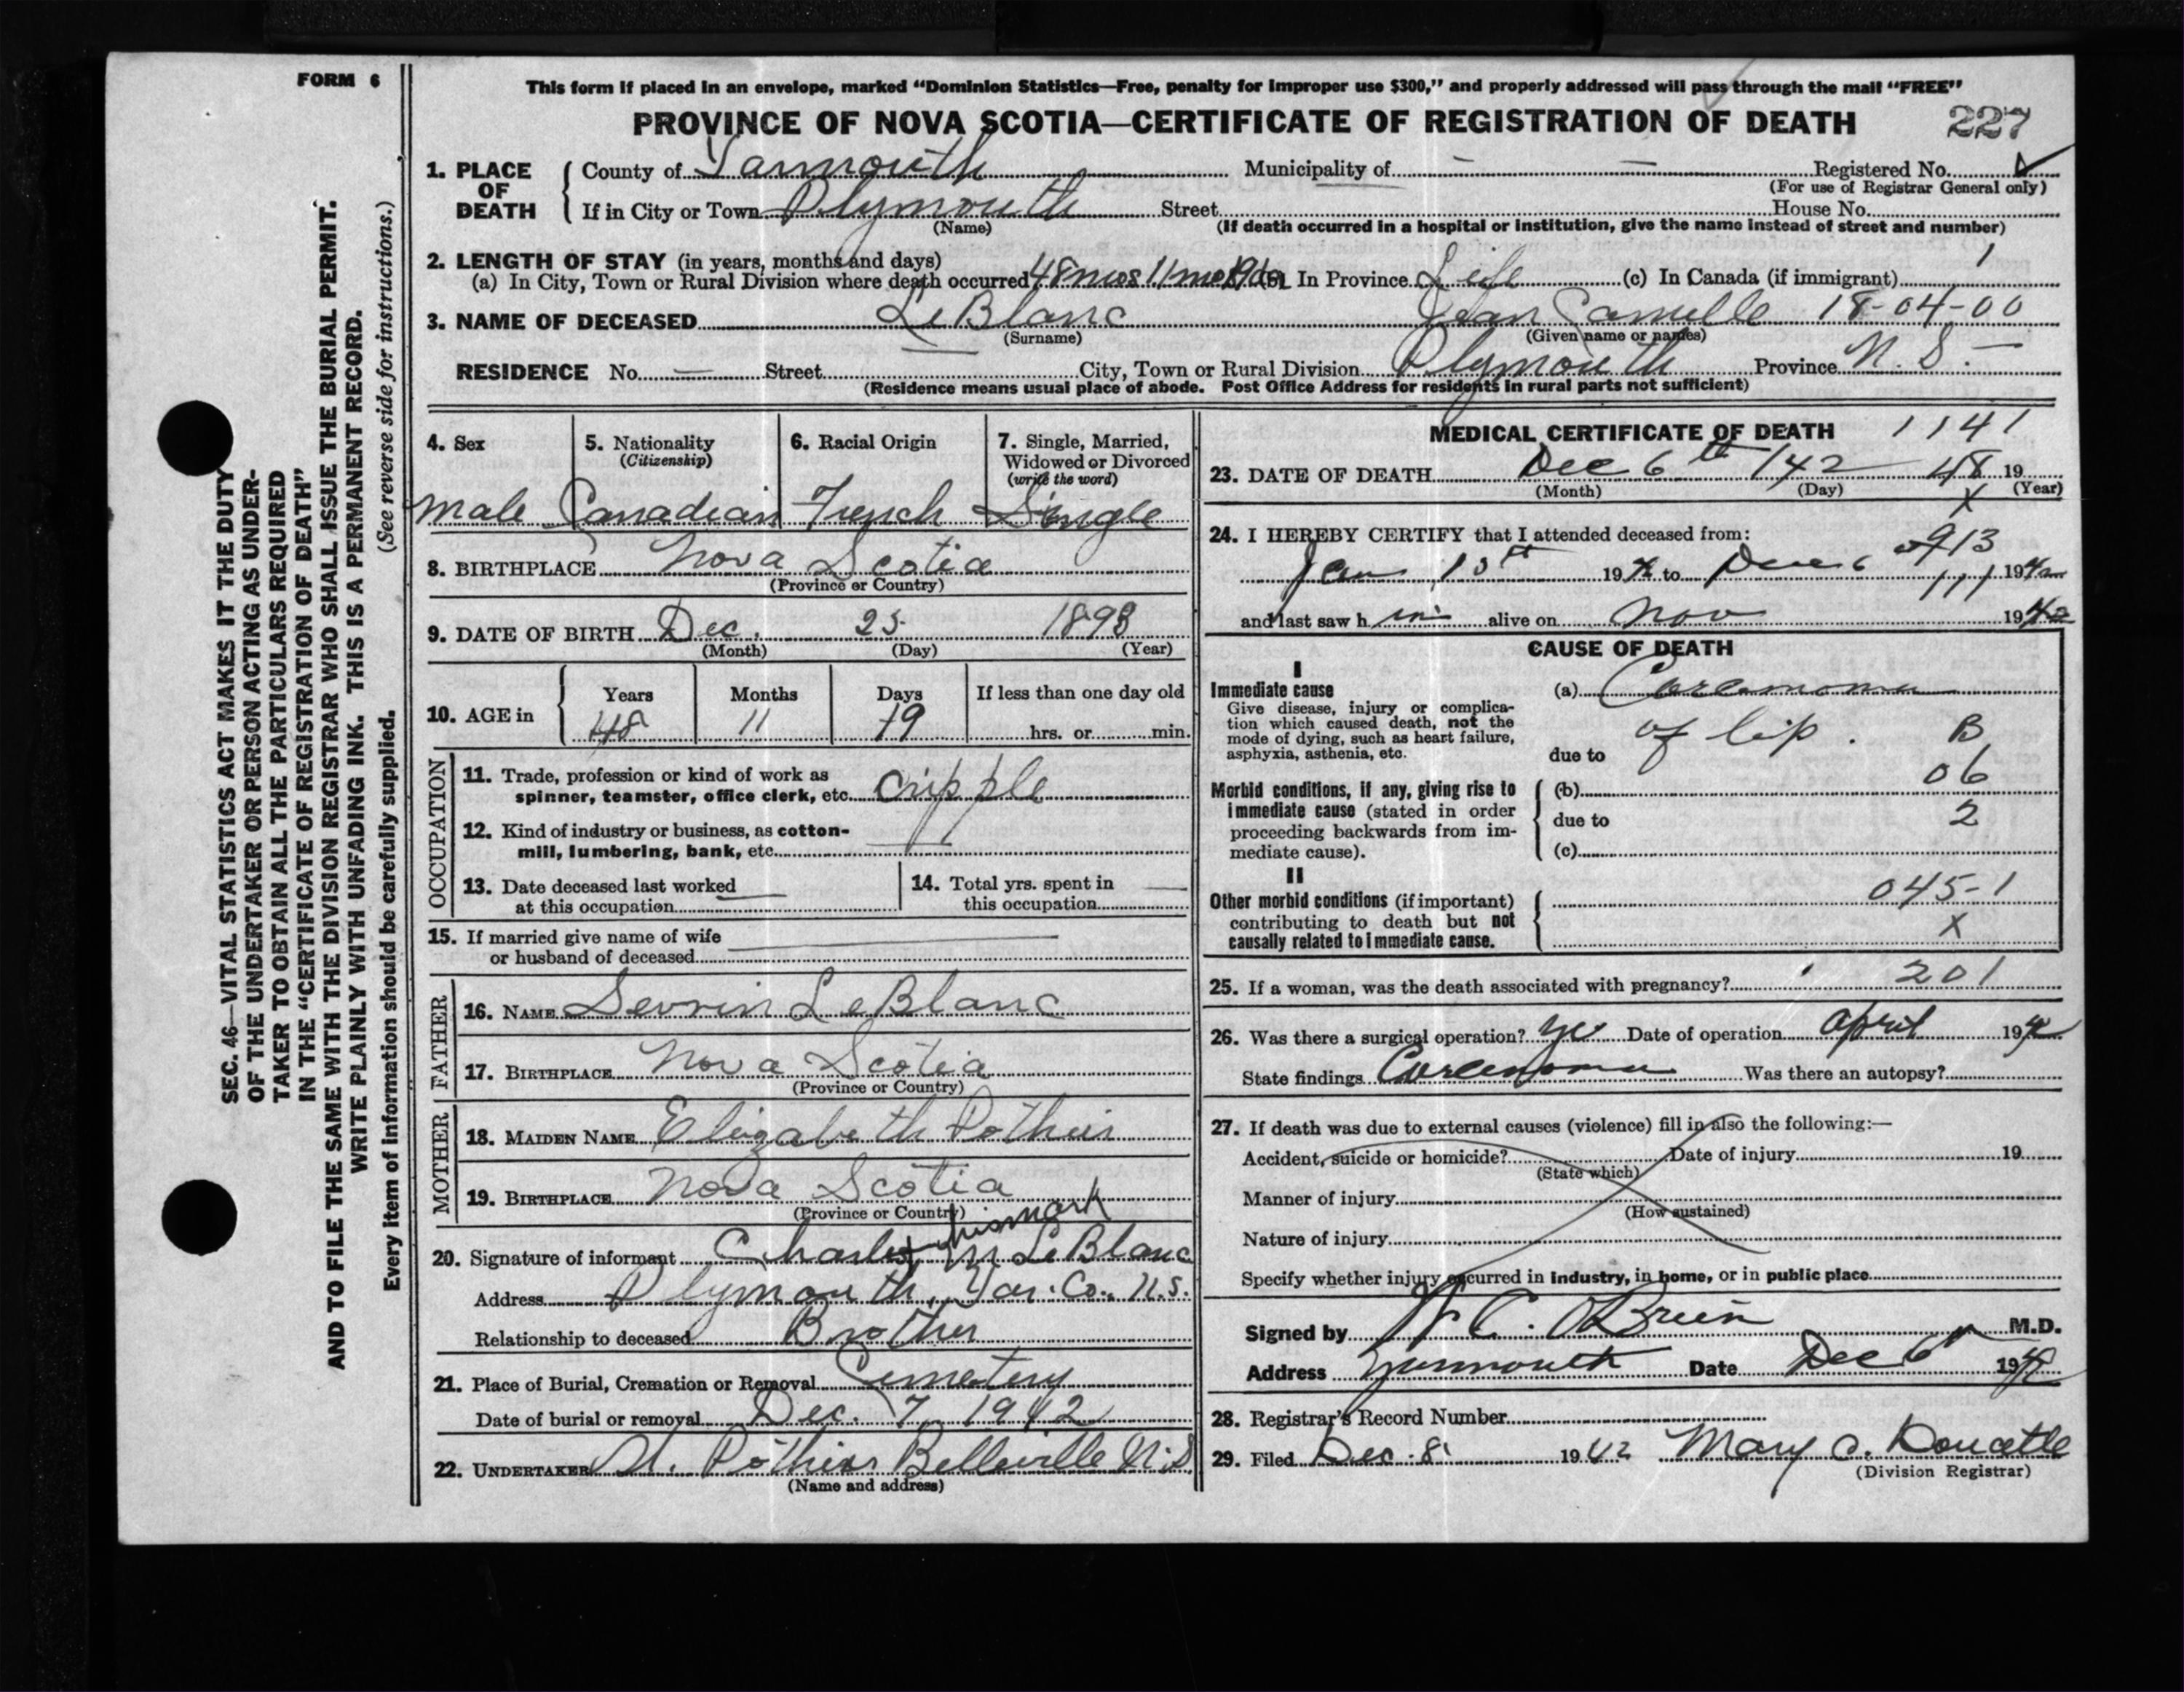 FORM 6
This form if placed in an envelope, marked “Dominion Statistics—Free, penalty for improper use $300,” and properly addressed will pass through the mail “FREE”
PROVINCE OF NOVA SCOTIA—CERTIFICATE OF REGISTRATION OF DEATH 227
1. PLACE OF DEATH { County of Yarmouth Municipality of — — Registered No.
(For use of Registrar General only)
If in City or Town Plymouth Street House No.
(Name) (If death occurred in a hospital or institution, give the name instead of street and number)
2. LENGTH OF STAY (in years, months and days) 1
(a) In City, Town or Rural Division where death occurred 48 11 (b) In Province Life (c) In Canada (if immigrant)
3. NAME OF DECEASED LeBlanc Jean Camille 18-04-00
(Surname) (Given name or names)
RESIDENCE No. — Street City, Town or Rural Division Plymouth Province N. S. —
(Residence means usual place of abode. Post Office Address for residents in rural parts not sufficient)
4. Sex 5. Nationality 6. Racial Origin 7. Single, Married,
(Citizenship) Widowed or Divorced
(write the word)
Male Canadian French Single
8. BIRTHPLACE Nova Scotia
(Province or Country)
9. DATE OF BIRTH Dec. 25 1893
(Month) (Day) (Year)
Years Months Days If less than one day old
10. AGE in { 48 11 19 hrs. or min.
OCCUPATION
11. Trade, profession or kind of work as
spinner, teamster, office clerk, etc. cripple
12. Kind of industry or business, as cotton-
mill, lumbering, bank, etc. —
13. Date deceased last worked — 14. Total yrs. spent in —
at this occupation this occupation
15. If married give name of wife —
or husband of deceased
FATHER
16. NAME Sevrin LeBlanc
17. BIRTHPLACE Nova Scotia
(Province or Country)
MOTHER
18. MAIDEN NAME Elizabeth Pothier
19. BIRTHPLACE Nova Scotia
(Province or Country)
his mark
20. Signature of informant Charles x M LeBlanc
Address Plymouth, Yar. Co., N.S.
Relationship to deceased Brother
21. Place of Burial, Cremation or Removal Cemetery
Date of burial or removal Dec. 7, 1942
22. UNDERTAKER Pothier Belleville N.S.
(Name and address)
MEDICAL CERTIFICATE OF DEATH 1141
23. DATE OF DEATH Dec 6th 142 48 19
(Month) (Day) (Year)
x
24. I HEREBY CERTIFY that I attended deceased from:
913
Jan 19 42 to Dec 6 1942
111
and last saw him alive on Nov 1942
CAUSE OF DEATH
I
Immediate cause
Give disease, injury or complica-
tion which caused death, not the
mode of dying, such as heart failure,
asphyxia, asthenia, etc.
(a) Carcinoma
of lip. B
due to
06
Morbid conditions, if any, giving rise to
immediate cause (stated in order
proceeding backwards from im-
mediate cause).
(b)
due to 2
(c)
II
Other morbid conditions (if important)
contributing to death but not
causally related to immediate cause.
045-1
x
25. If a woman, was the death associated with pregnancy? 201
26. Was there a surgical operation? yes Date of operation April 1942
State findings Carcinoma Was there an autopsy?
27. If death was due to external causes (violence) fill in also the following:—
Accident, suicide or homicide? Date of injury 19
(State which)
Manner of injury
(How sustained)
Nature of injury
Specify whether injury occurred in industry, in home, or in public place
Signed by C. O'Brien M.D.
Address Yarmouth Date Dec 6 1942
28. Registrar's Record Number
29. Filed Dec. 8 1942 Mary C. Doucette
(Division Registrar)
SEC. 46—VITAL STATISTICS ACT MAKES IT THE DUTY
OF THE UNDERTAKER OR PERSON ACTING AS UNDER-
TAKER TO OBTAIN ALL THE PARTICULARS REQUIRED
IN THE “CERTIFICATE OF REGISTRATION OF DEATH”
AND TO FILE THE SAME WITH THE DIVISION REGISTRAR WHO SHALL ISSUE THE BURIAL PERMIT.
WRITE PLAINLY WITH UNFADING INK. THIS IS A PERMANENT RECORD.
Every item of information should be carefully supplied. (See reverse side for instructions.)